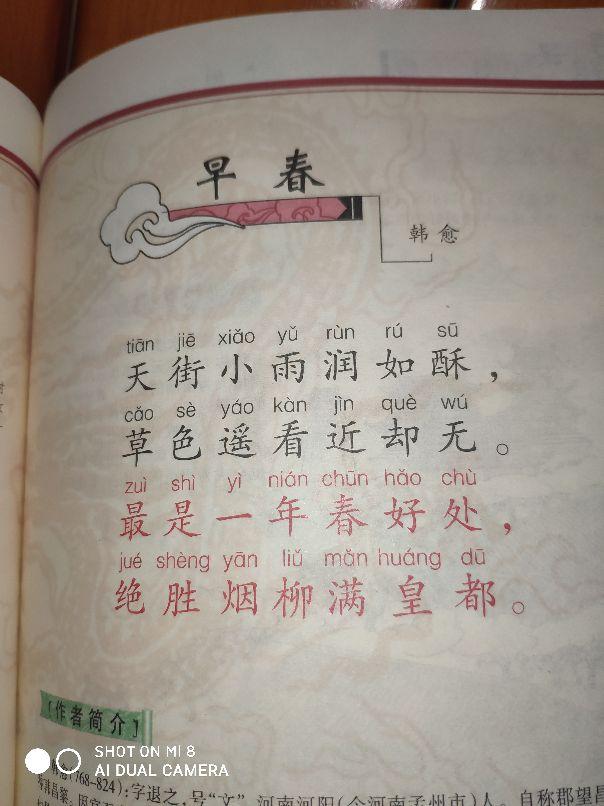 早春
韩愈
tiān jiē xiǎo yǔ rùn rú sū
天街小雨润如酥，
cǎo sè yáo kàn jìn què wú
草色遥看近却无。
zuì shì yì nián chūn hǎo chù
最是一年春好处，
jué shèng yān liǔ mǎn huáng dū
绝胜烟柳满皇都。
［作者简介］
(768-824)：字退之，号“文”，河南河阳(今河南孟州市)人。自称郡望昌
SHOT ON MI 8
AI DUAL CAMERA